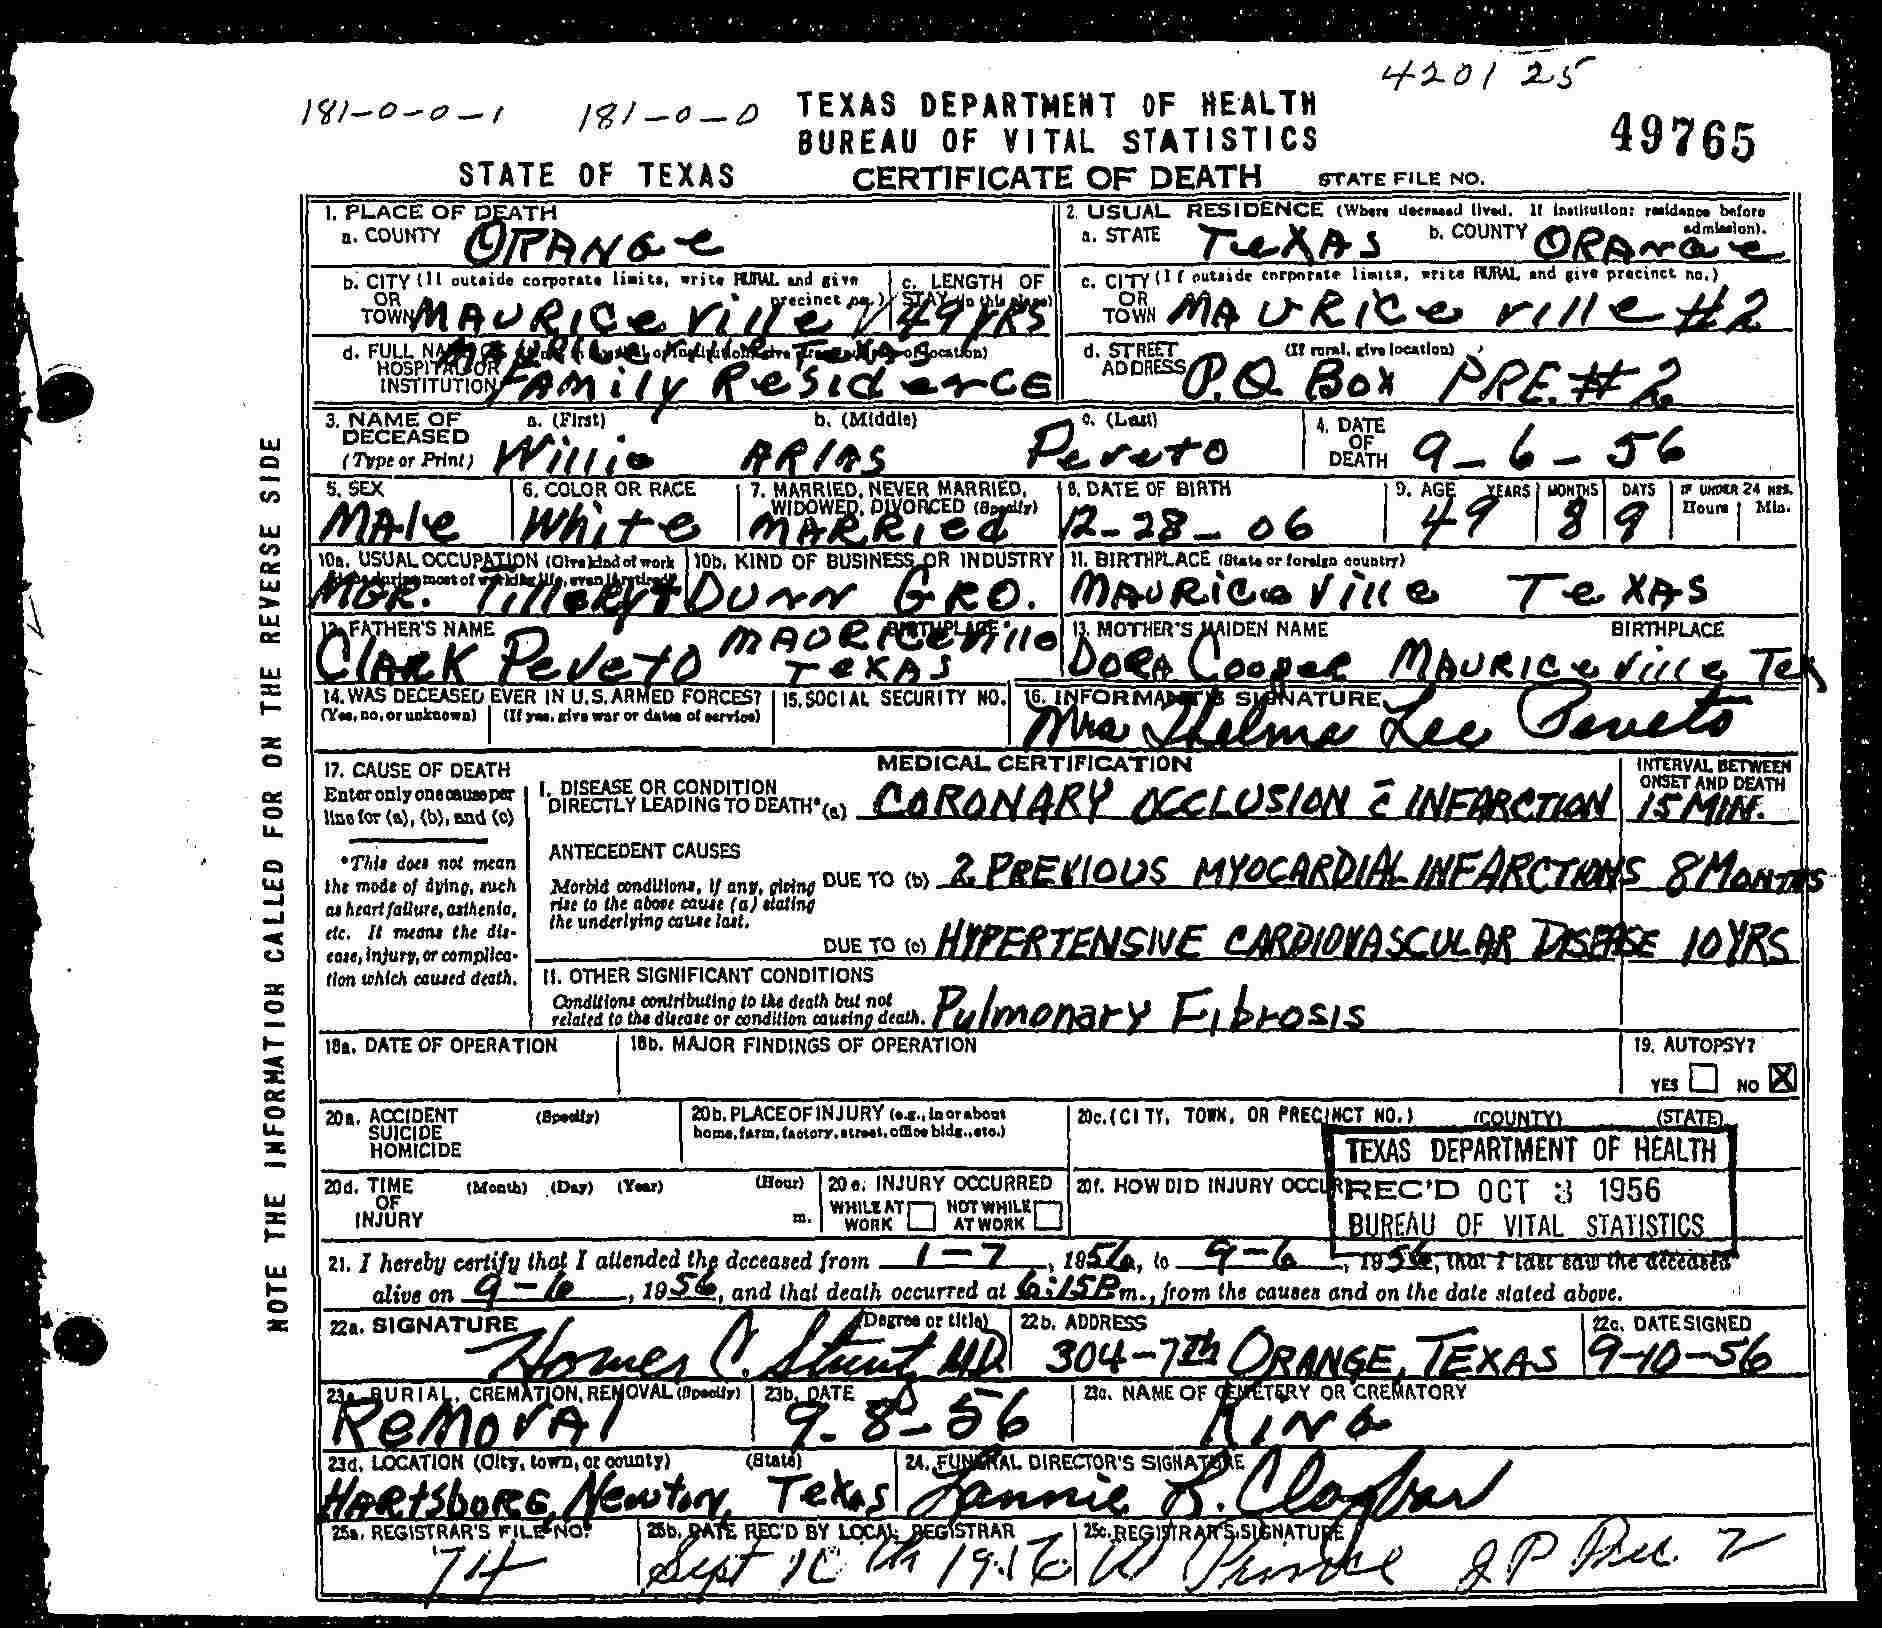 4201 25
181-0-0-1 181-0-0 TEXAS DEPARTMENT OF HEALTH
BUREAU OF VITAL STATISTICS
49765
STATE OF TEXAS CERTIFICATE OF DEATH STATE FILE NO.
NOTE THE INFORMATION CALLED FOR ON THE REVERSE SIDE
1. PLACE OF DEATH
a. COUNTY ORANGe
2. USUAL RESIDENCE (Where deceased lived. If institution: residence before admission).
a. STATE TeXAS b. COUNTY ORANGe
b. CITY (If outside corporate limits, write RURAL and give precinct no.)
OR
TOWN MAURICeVille
c. LENGTH OF
STAY (in this place)
49 YRS
c. CITY (If outside corporate limits, write RURAL and give precinct no.)
OR
TOWN MAURICeville #2
d. FULL NAME OF
HOSPITAL OR
INSTITUTION
Family Residence
d. STREET (If rural, give location)
ADDRESS P.O. Box PRE. #2
3. NAME OF DECEASED
(Type or Print)
a. (First) b. (Middle) c. (Last)
Willie ARIAS Peveto
4. DATE
OF
DEATH 9-6-56
5. SEX
MAle
6. COLOR OR RACE
White
7. MARRIED, NEVER MARRIED,
WIDOWED, DIVORCED (Specify)
MARRied
8. DATE OF BIRTH
12-28-06
9. AGE YEARS MONTHS DAYS IF UNDER 24 HRS.
Hours Min.
49 8 9
10a. USUAL OCCUPATION (Give kind of work
done during most of working life, even if retired)
MGR. Tillery +
10b. KIND OF BUSINESS OR INDUSTRY
Dunn GRO.
11. BIRTHPLACE (State or foreign country)
MAURiceVille TeXAS
12. FATHER'S NAME BIRTHPLACE
Clark Peveto MAURICeVille
TeXAS
13. MOTHER'S MAIDEN NAME BIRTHPLACE
DoRA CoopeR MAURICeVille Tex
14. WAS DECEASED EVER IN U.S. ARMED FORCES?
(Yes, no, or unknown) (If yes, give war or dates of service)
15. SOCIAL SECURITY NO.
16. INFORMANT'S SIGNATURE
Mrs Thelma Lee Peveto
17. CAUSE OF DEATH
Enter only one cause per
line for (a), (b), and (c)
*This does not mean
the mode of dying, such
as heart failure, asthenia,
etc. It means the dis-
ease, injury, or complica-
tion which caused death.
MEDICAL CERTIFICATION
INTERVAL BETWEEN
ONSET AND DEATH
I. DISEASE OR CONDITION
DIRECTLY LEADING TO DEATH* (a) CORONARY OCCLUSION c̄ INFARCTION 15 MIN.
ANTECEDENT CAUSES
Morbid conditions, if any, giving
rise to the above cause (a) stating
the underlying cause last.
DUE TO (b) 2 PREVIOUS MYOCARDIAL INFARCTIONS 8 MONTHS
DUE TO (c) HYPERTENSIVE CARDIOVASCULAR DISEASE 10 YRS
II. OTHER SIGNIFICANT CONDITIONS
Conditions contributing to the death but not
related to the disease or condition causing death.
Pulmonary Fibrosis
18a. DATE OF OPERATION
18b. MAJOR FINDINGS OF OPERATION
19. AUTOPSY?
YES NO X
20a. ACCIDENT (Specify)
SUICIDE
HOMICIDE
20b. PLACE OF INJURY (e.g., in or about
home, farm, factory, street, office bldg., etc.)
20c. (CITY, TOWN, OR PRECINCT NO.) (COUNTY) (STATE)
TEXAS DEPARTMENT OF HEALTH
REC'D OCT 3 1956
BUREAU OF VITAL STATISTICS
20d. TIME (Month) (Day) (Year) (Hour)
OF
INJURY m.
20e. INJURY OCCURRED
WHILE AT
WORK
NOT WHILE
AT WORK
20f. HOW DID INJURY OCCUR
21. I hereby certify that I attended the deceased from 1-7, 1956, to 9-6, 1956, that I last saw the deceased
alive on 9-6, 1956, and that death occurred at 6:15P m., from the causes and on the date stated above.
22a. SIGNATURE (Degree or title)
Homer C. Stunt MD
22b. ADDRESS
304-7th ORANGE, TEXAS
22c. DATE SIGNED
9-10-56
23a. BURIAL, CREMATION, REMOVAL (Specify)
ReMoVAl
23b. DATE
9-8-56
23c. NAME OF CEMETERY OR CREMATORY
KiNG
23d. LOCATION (City, town, or county) (State)
HARtsbuRG, Newton, TeXas
24. FUNERAL DIRECTOR'S SIGNATURE
Lannie R. Claybar
25a. REGISTRAR'S FILE NO.
74
25b. DATE REC'D BY LOCAL REGISTRAR
Sept 10th 1956
25c. REGISTRAR'S SIGNATURE
JP Prec. 2